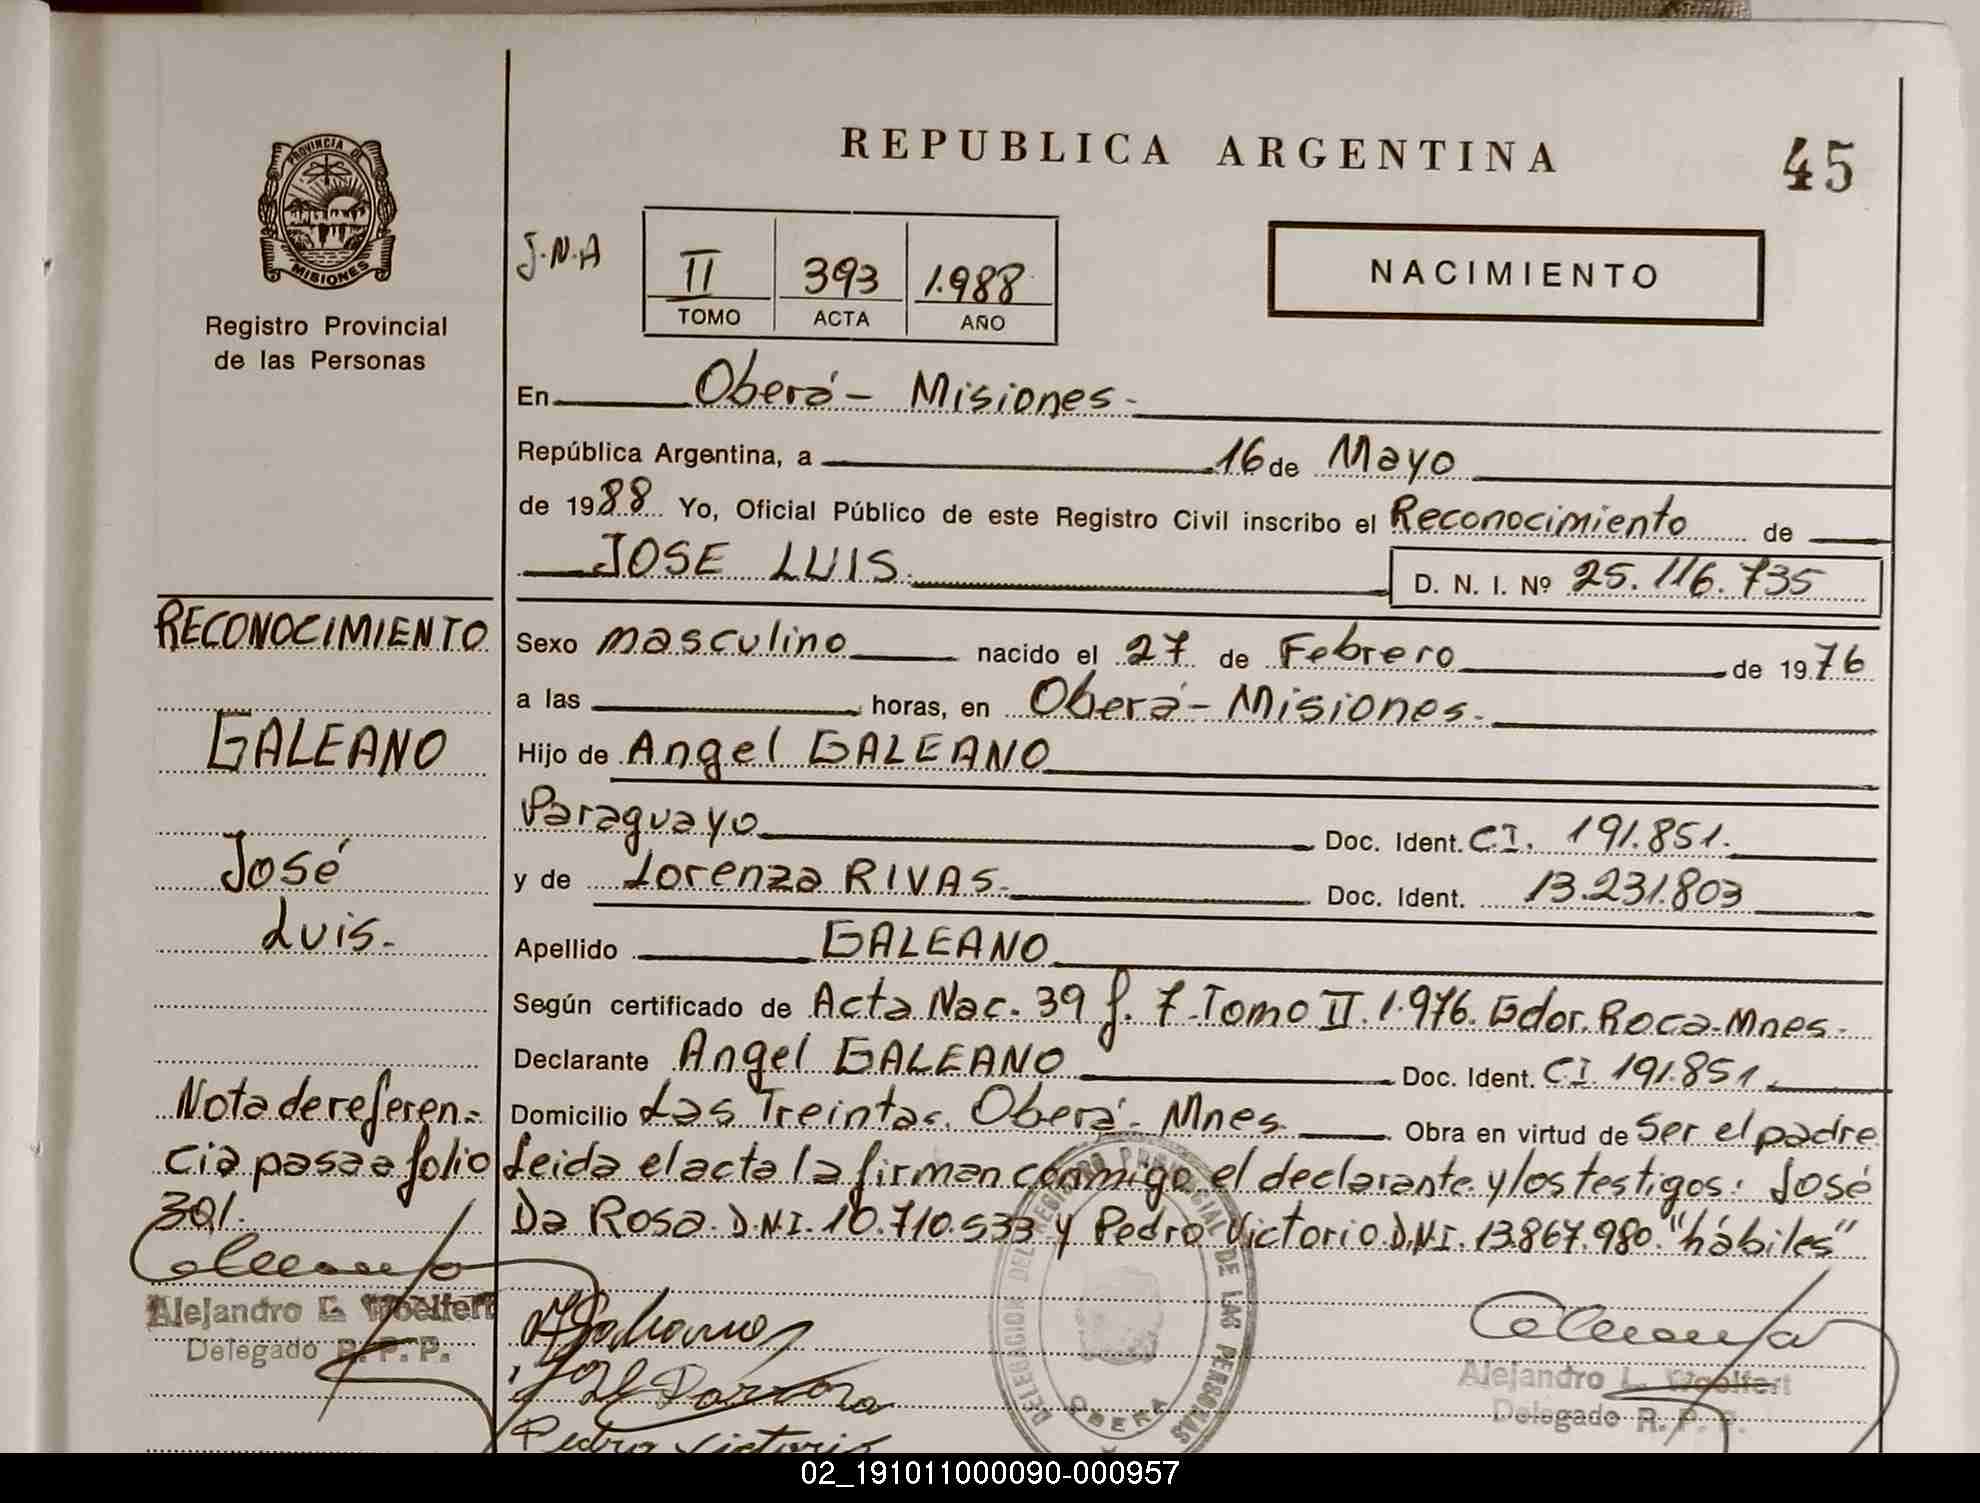 REPUBLICA ARGENTINA
45
PROVINCIA DE
MISIONES
Registro Provincial
de las Personas
J.N.A
II 393 1.988
TOMO ACTA AÑO
NACIMIENTO
En Oberá - Misiones -
República Argentina, a 16 de Mayo
de 1988 Yo, Oficial Público de este Registro Civil inscribo el Reconocimiento de
JOSE LUIS.
D. N. I. Nº 25.116.735
Sexo masculino nacido el 27 de Febrero de 1976
a las horas, en Oberá - Misiones.
Hijo de Angel GALEANO
Paraguayo Doc. Ident. C.I. 191.851.
y de Lorenza RIVAS. Doc. Ident. 13.231.803
Apellido GALEANO
Según certificado de Acta Nac. 39 f. 7 Tomo II. 1.976. Gdor. Roca - Mnes -
Declarante Angel GALEANO Doc. Ident. CI 191.851.
Domicilio Las Treintas. Oberá - Mnes. Obra en virtud de Ser el padre
Leida el acta la firman conmigo el declarante y los testigos: José
Da Rosa. D.N.I. 10.710.533 y Pedro Victorio D.N.I. 13.867.980. "hábiles"
RECONOCIMIENTO
GALEANO
José
Luis.
Nota de referen-
cia pasa a folio
301.
Alejandro L. Woelfert
Delegado R. P. P.
Pedro Victorio
DELEGACION DEL REGISTRO PROVINCIAL DE LAS PERSONAS
OBERA
Alejandro L. Woelfert
Delegado R. P. P.
02_191011000090-000957